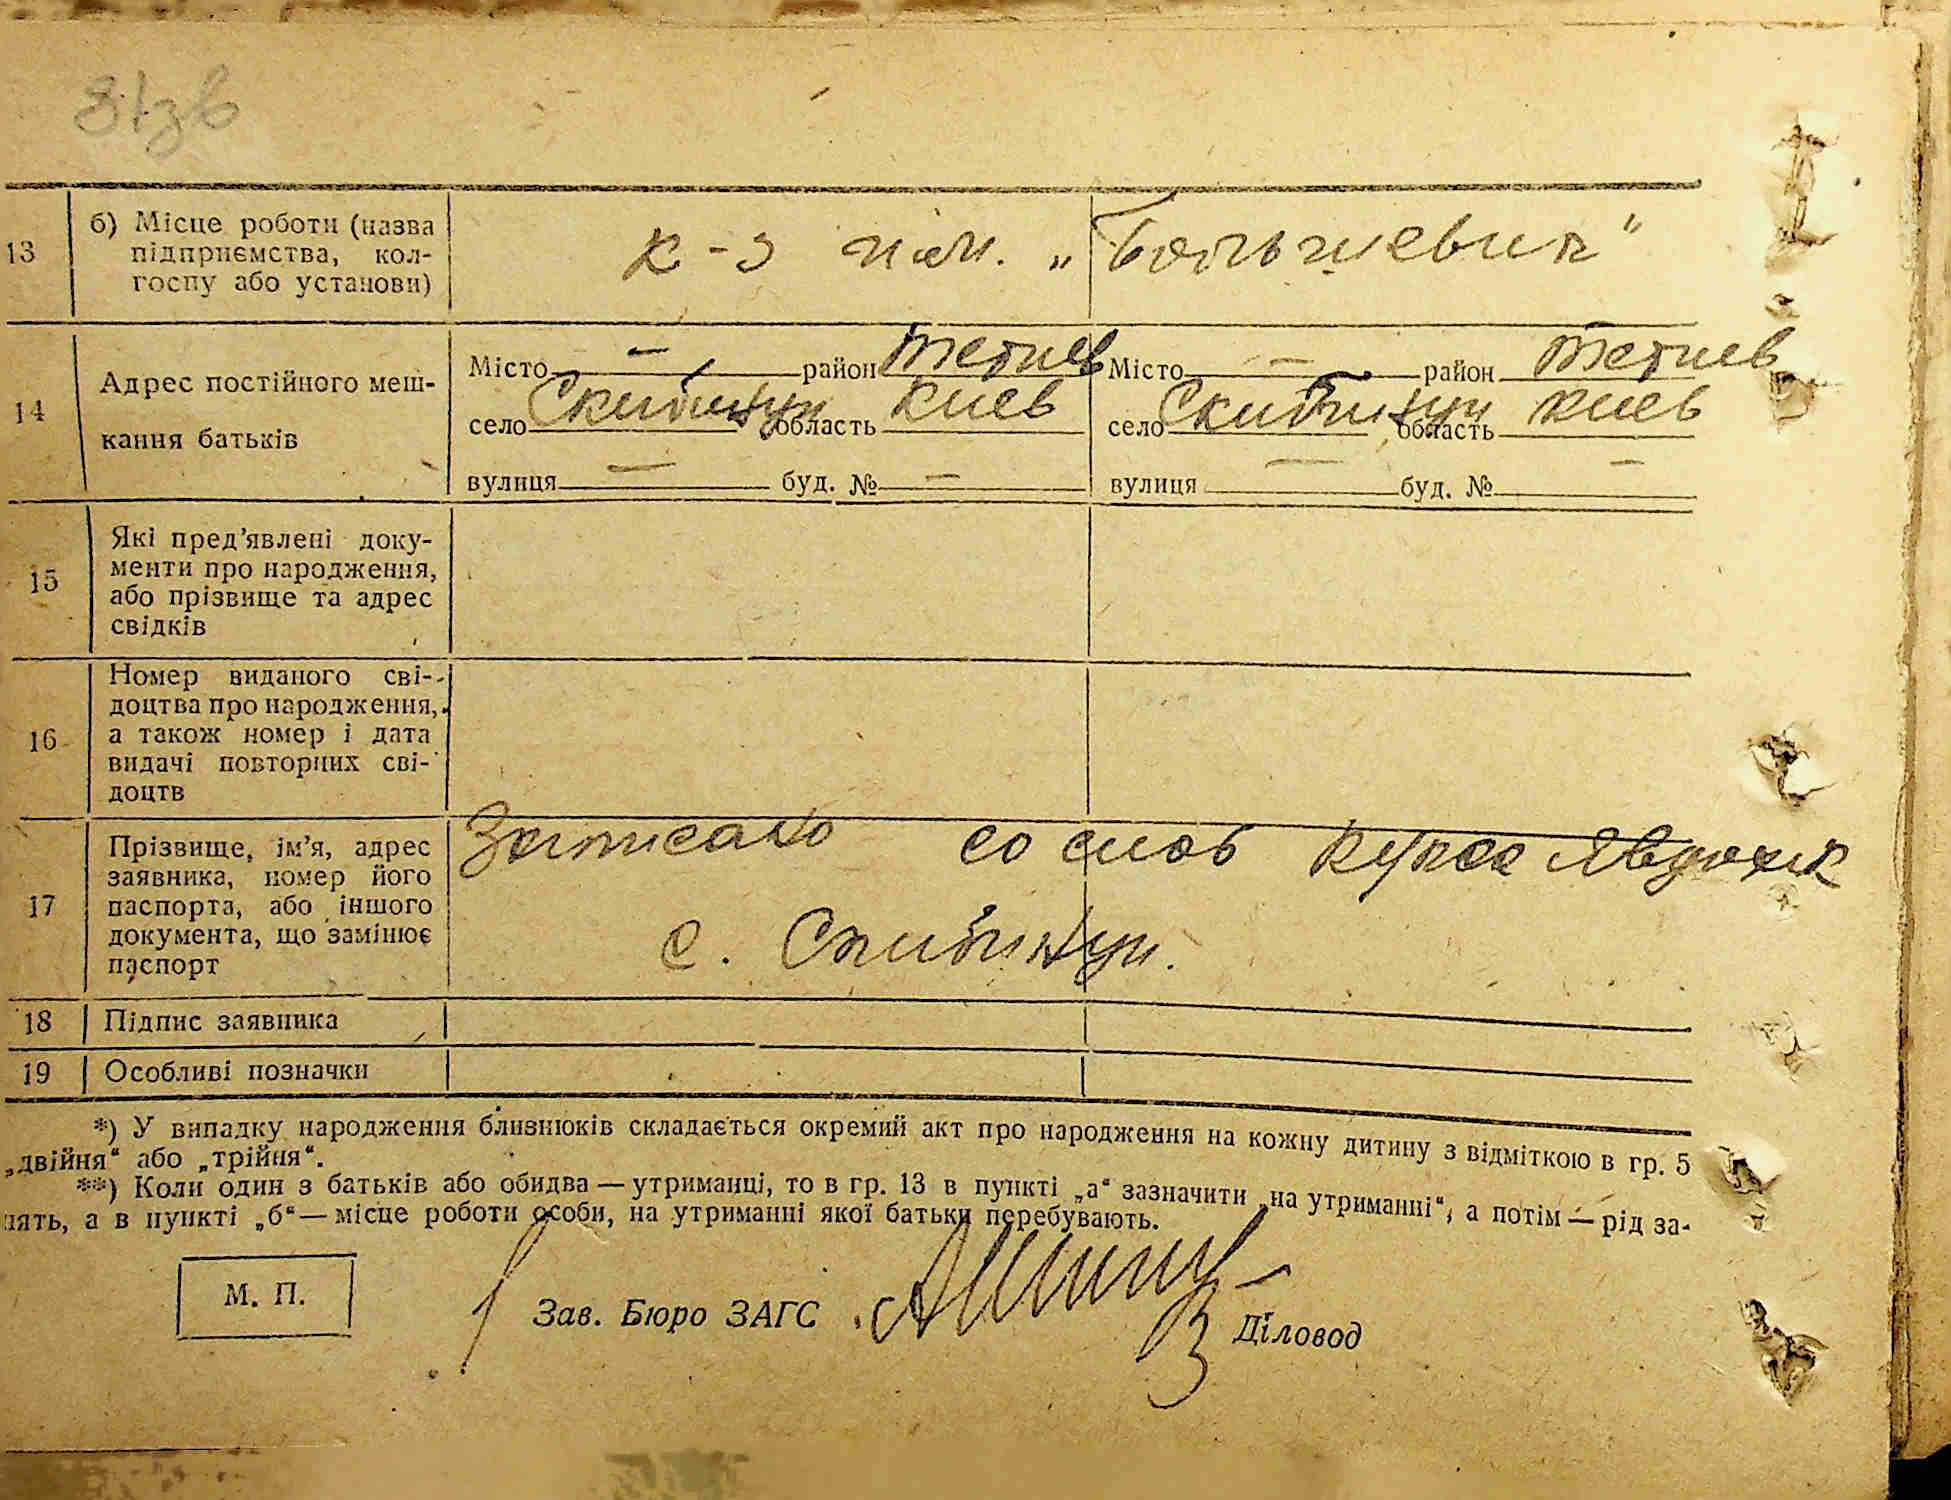 81зв
13 б) Місце роботи (назва
підприємства, кол-
госпу або установи)
к-з им. „Большевик"
14 Адрес постійного меш-
кання батьків
Місто — район Тетиев Місто — район Тетиев
село Скибинцы область Киев село Скибинцы область Киев
вулиця — буд. № — вулиця — буд. № —
15 Які пред'явлені доку-
менти про народження,
або прізвище та адрес
свідків
16 Номер виданого сві-
доцтва про народження,
а також номер і дата
видачі повторних сві-
доцтв
17 Прізвище, ім'я, адрес
заявника, номер його
паспорта, або іншого
документа, що замінює
паспорт
Записано со слов
с. Скибинцы.
18 Підпис заявника
19 Особливі позначки
*) У випадку народження близнюків складається окремий акт про народження на кожну дитину з відміткою в гр. 5
„двійня“ або „трійня“.
**) Коли один з батьків або обидва — утриманці, то в гр. 13 в пункті „а“ зазначити „на утриманні“, а потім — рід за-
нять, а в пункті „б“ — місце роботи особи, на утриманні якої батьки перебувають.
М. П.
Зав. Бюро ЗАГС
Діловод